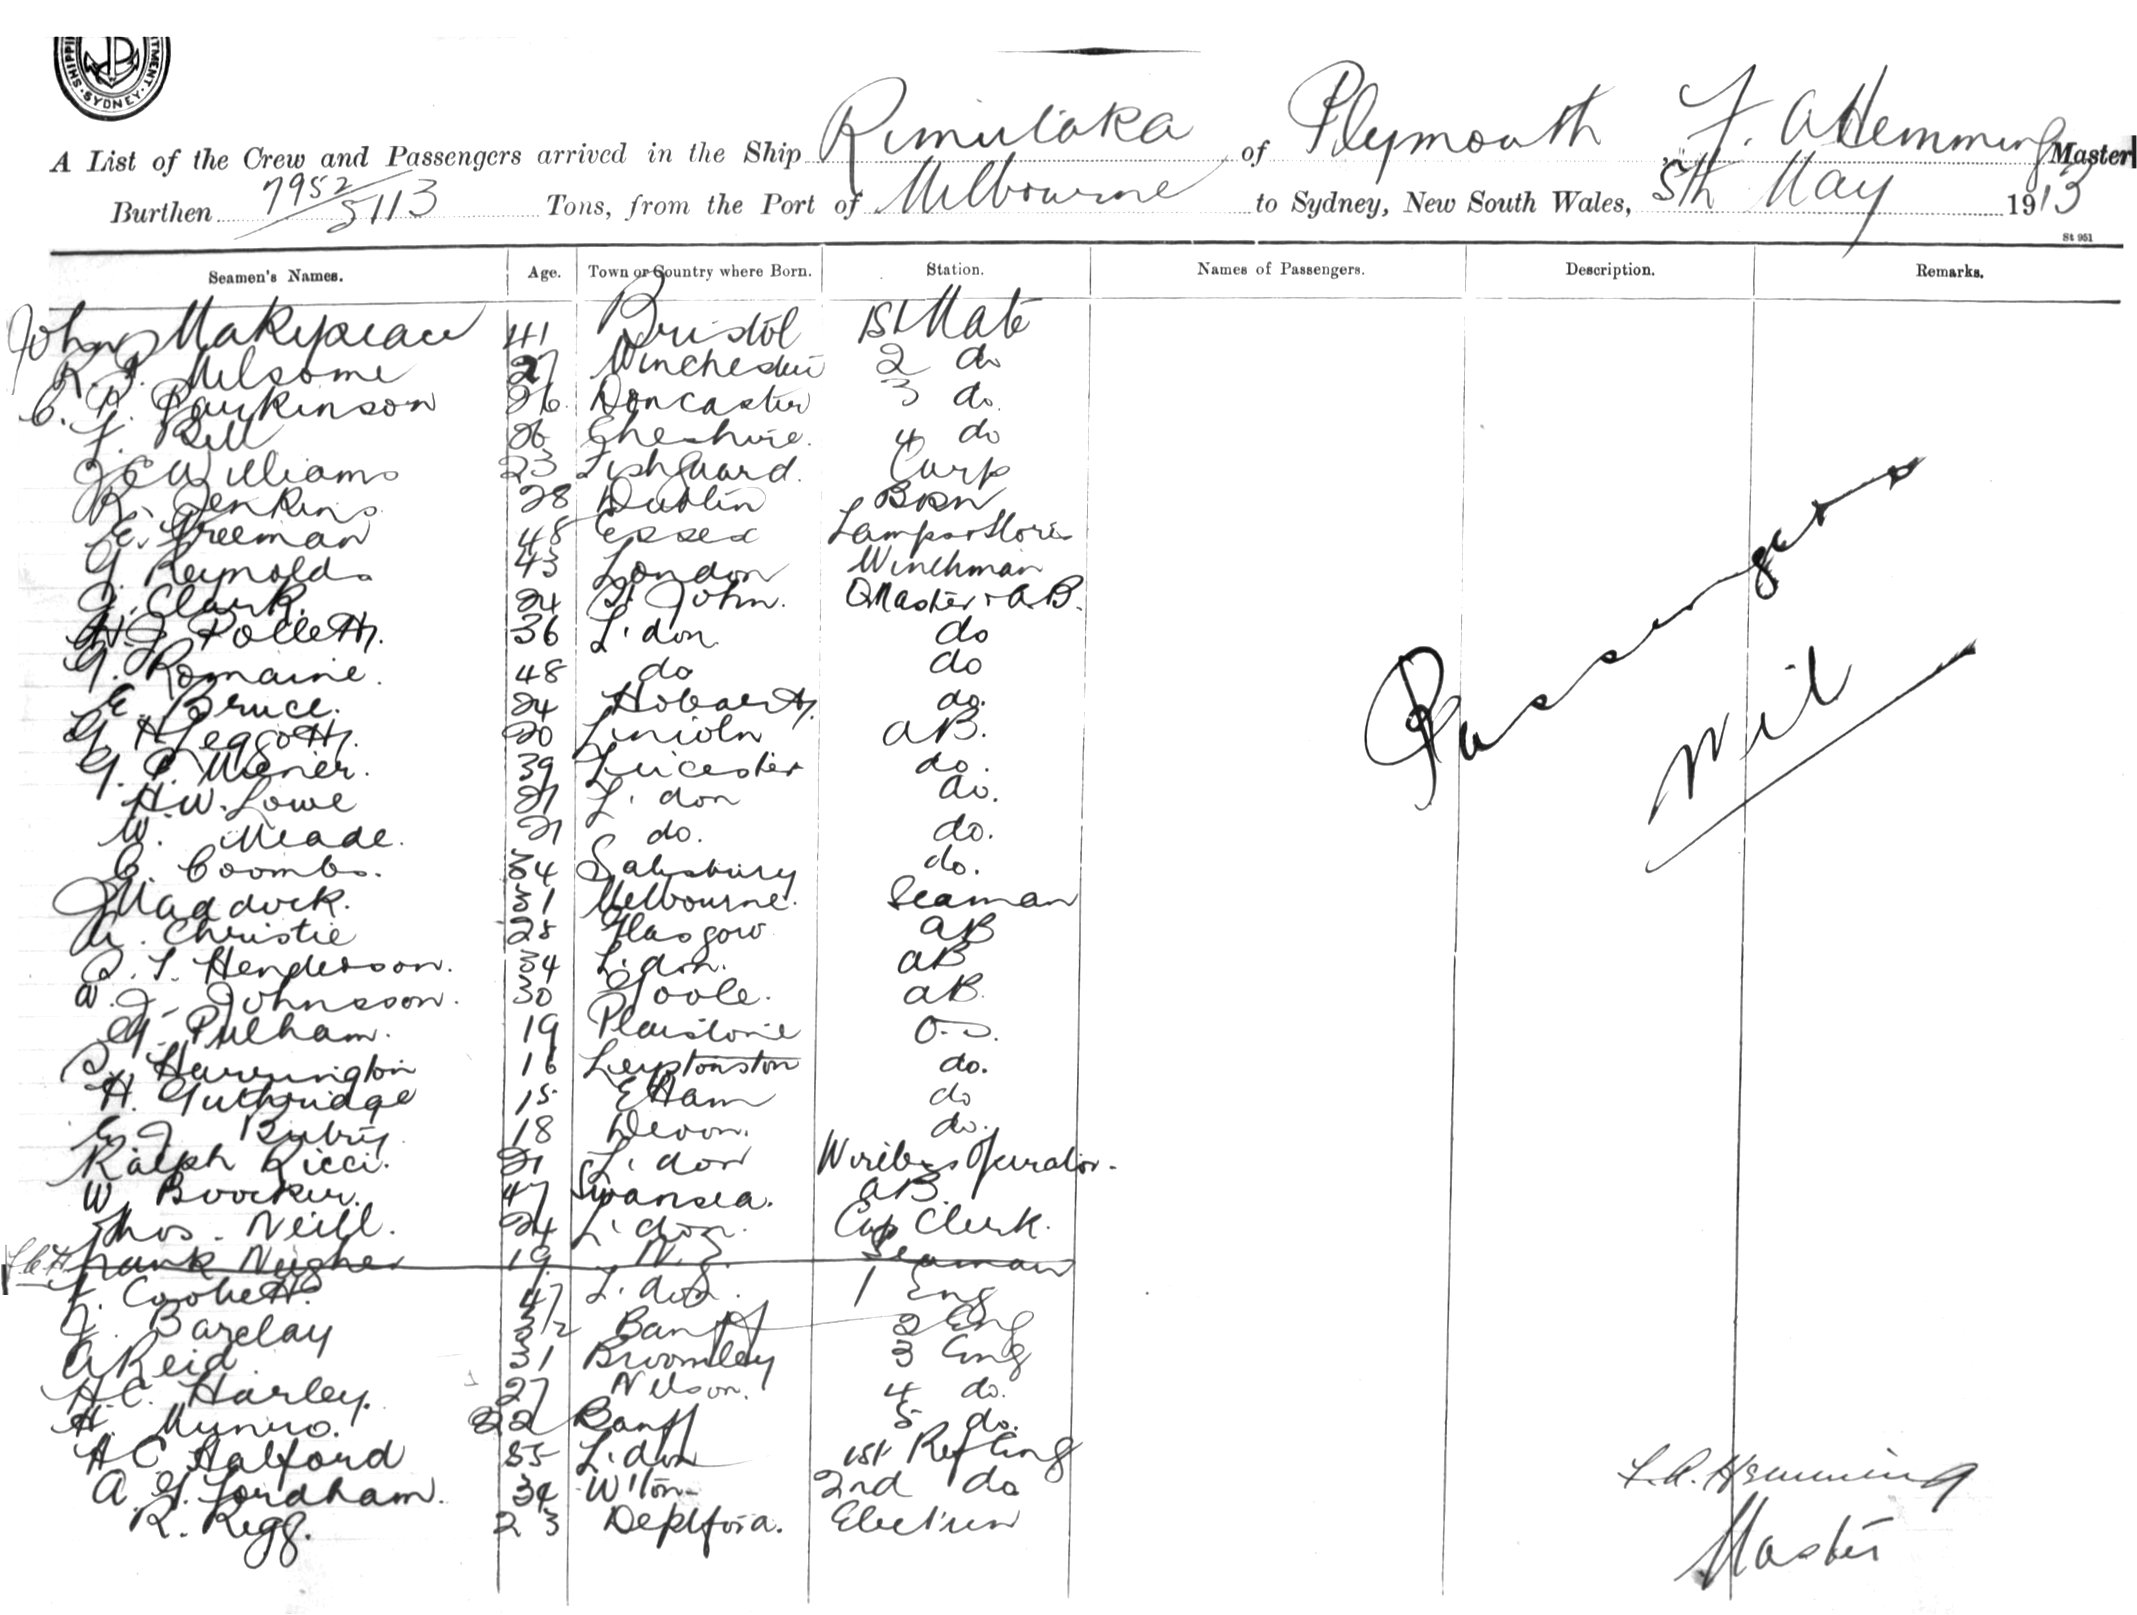 SHIPPI
RTMENT
SYDNEY
A List of the Crew and Passengers arrived in the Ship Rimutaka of Plymouth, F. A Hemming Master
Burthen 7952/5113 Tons, from the Port of Melbourne to Sydney, New South Wales, 5th May 1913
St 951
Seamen's Names. Age. Town or Country where Born. Station. Names of Passengers. Description. Remarks.
John Makepeace 41 Bristol 1st Mate
R. J. Milsome 27 Winchester 2 do
C. P. Parkinson 26 Doncaster 3 do.
F. Bell 26 Cheshire. 4 do
J C Williams 23 Fishguard. Carp
R. Jenkins 28 Dublin BSN
E. Freeman 48 Essex Lamps & Stores
G. Reynolds 43 London Winchman
J. Clark. 24 St. John. QMaster & A.B.
H. J Pollett. 36 L'don do
G. Romaine. 48 do do
E. Bruce. 24 Hobart. do.
G. H Leggott. 20 Lincoln AB.
G. P. Misner. 39 Leicester do.
H.W. Lowe 21 L'don do.
W. Meade. 21 do. do.
C. Coombs. 34 Salisbury do.
J Maddock. 31 Melbourne. Seaman
A. Christie 25 Glasgow AB
S. T. Henderson. 34 L'don. AB
A. J. Johnson. 30 Goole. AB.
G. Pulham. 19 Plaistowe O.S.
S. Harrington 16 Leytonston do.
H. Guthridge 15 E Ham do
E J 18 Devon. do.
Ralph Ricci. 21 L'don Wireless Operator.
W. Boocker. 47 Swansea. AB
Thos. Neill. 24 L'don. Cap Clerk.
Frank Neigher 19 N.Z. Seaman
F. Corbett. 47 L'don. 1 Eng
J. Barclay 32 Banff 2 Eng
A Reid 31 Broomley 3 Eng
H.C. Harley. 27 Nelson. 4 do.
H. Munro. 22 Banff 5 do.
H C Halford 35 L'don 1st Ref Eng
A. G. Fordham. 34 Wilton 2nd do
R. Rigg. 23 Deptford. Electrcn
Passengers
Nil
F. A. Hemming
Master